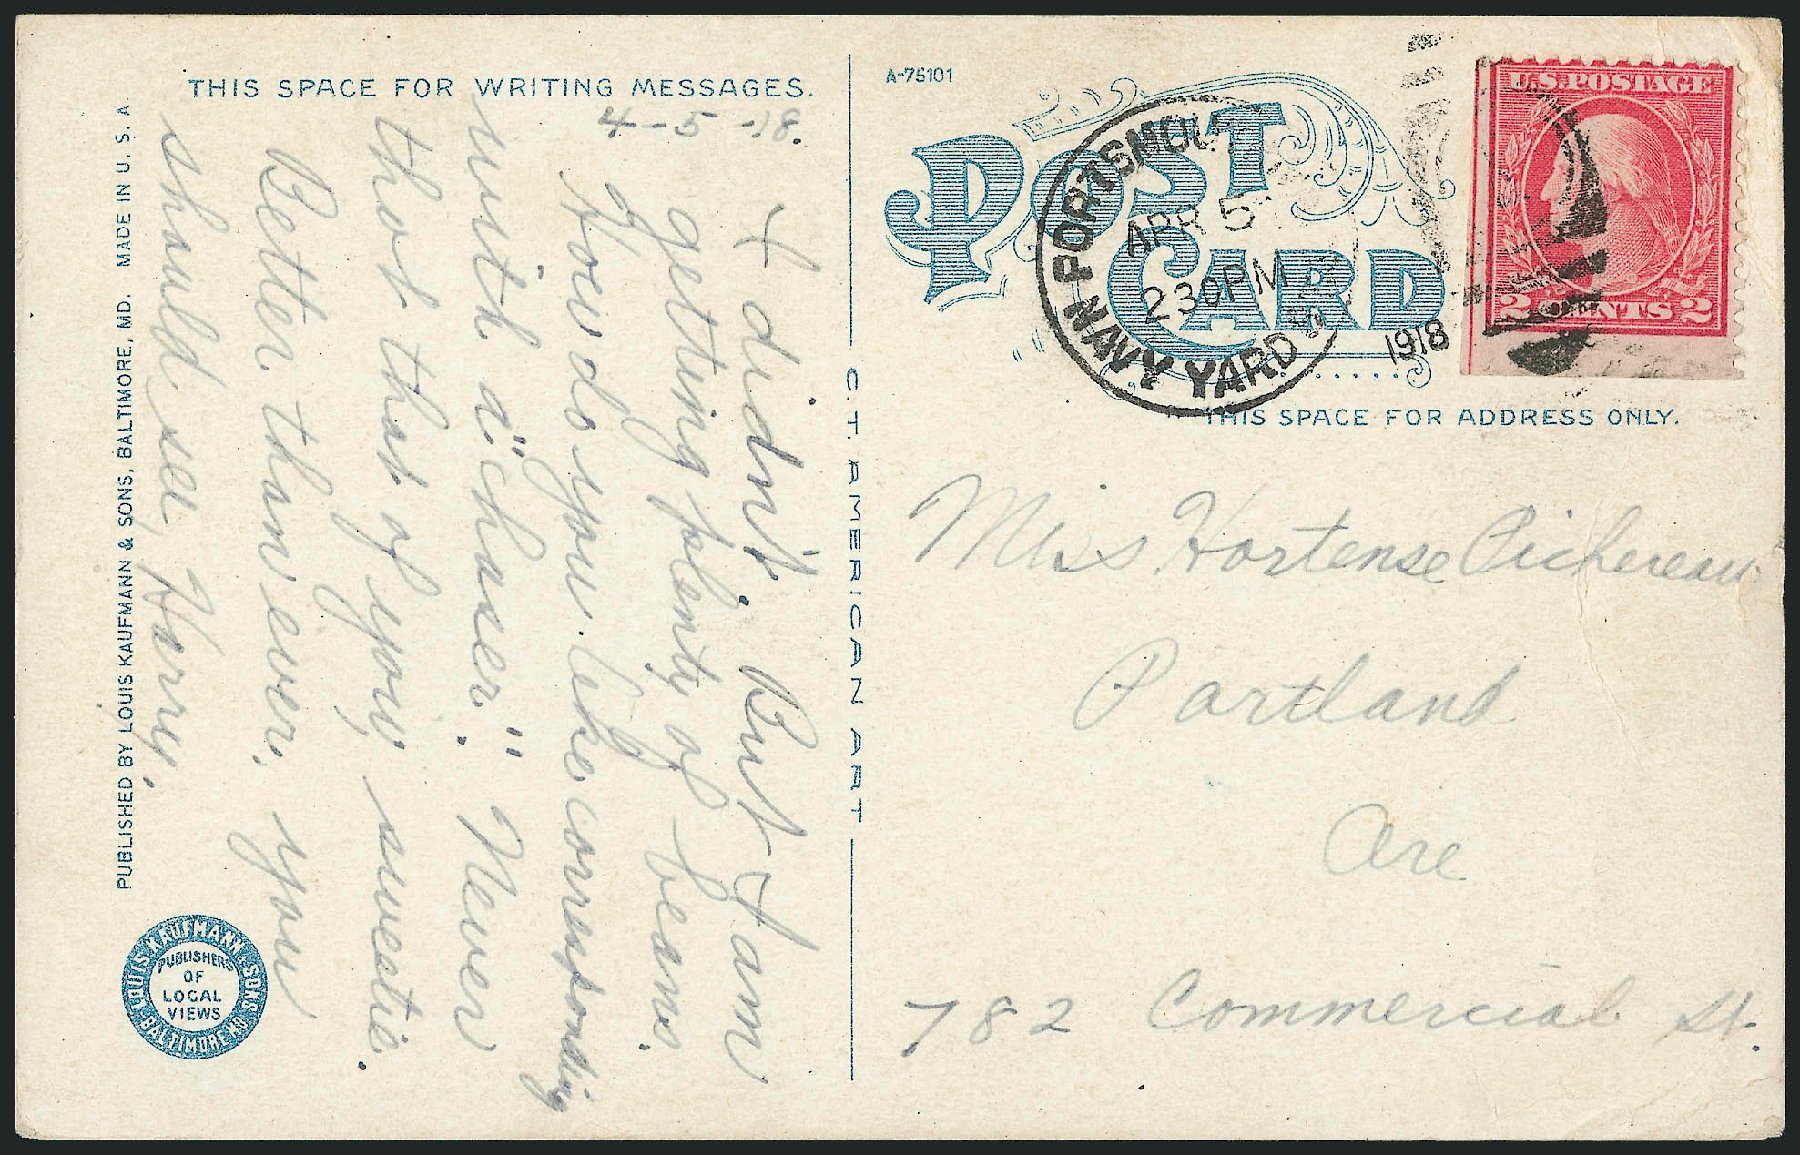 THIS SPACE FOR WRITING MESSAGES.
4-5-18.
I didn't. But I am
getting plenty of beans.
How do you like corresponding
with a "chaser." Never
thot that of you, sweetie.
Better than ever. you
should see Harry.
PUBLISHED BY LOUIS KAUFMANN & SONS, BALTIMORE, MD. MADE IN U.S.A.
LOUIS KAUFMANN & SONS
BALTIMORE MD.
PUBLISHERS
OF
LOCAL
VIEWS
C.T. AMERICAN ART
A-75101
POST
CARD
PORTSMOU
APR 5
230PM
1918
NAVY YARD
U.S. POSTAGE
2 CENTS 2
THIS SPACE FOR ADDRESS ONLY.
Miss Hortense Pichereau
Portland
Ore
782 Commercial St.